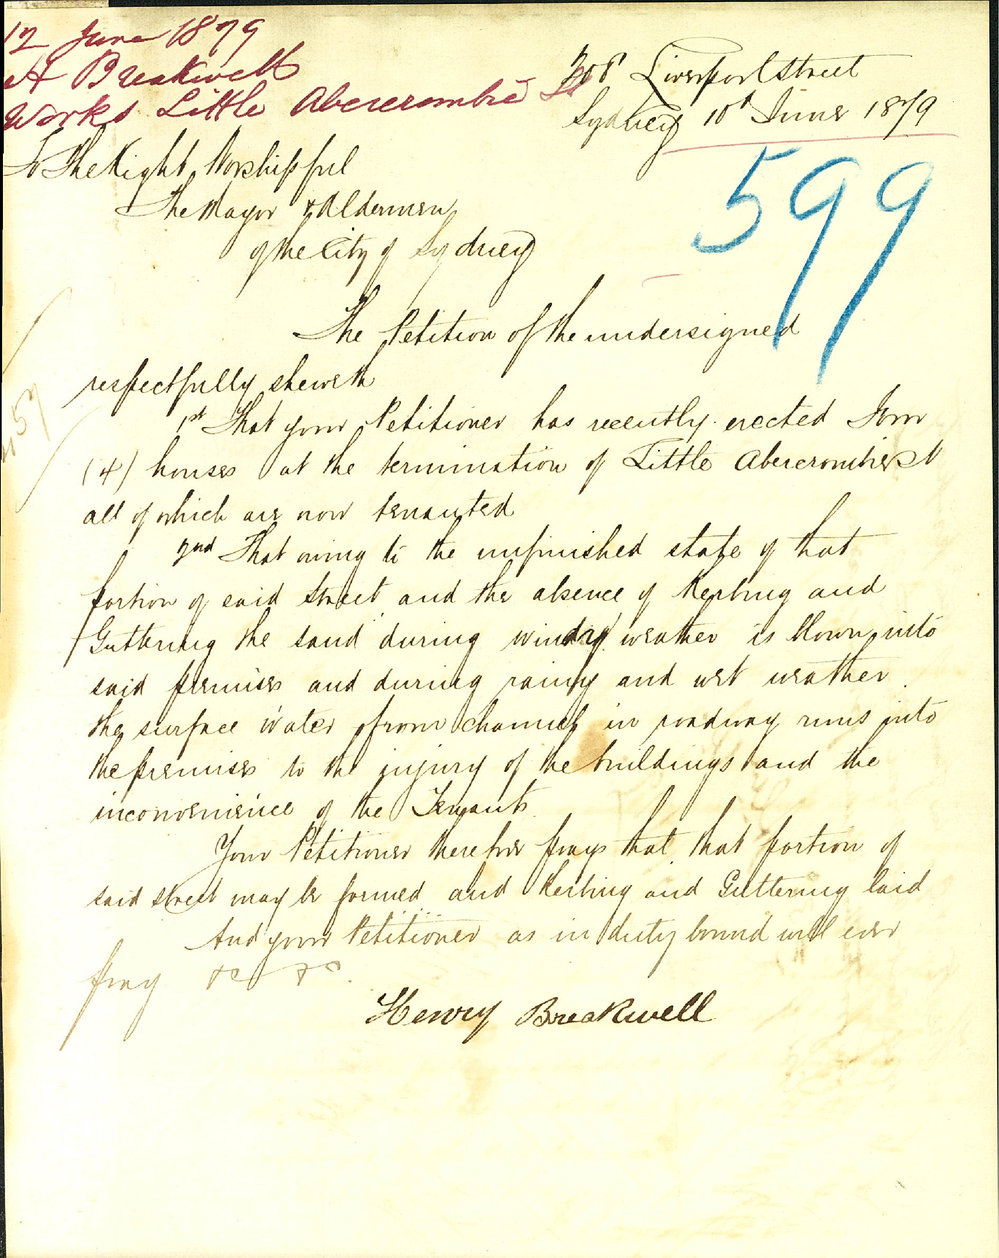 12 June 1879
H Breakwell
Works Little Abercrombie St
308 Liverpool Street
Sydney 10th June 1879
599
To The Right Worshipful
The Mayor & Aldermen
of the City of Sydney
The Petition of the undersigned
respectfully sheweth
1st That your Petitioner has recently erected Four
(4) houses at the termination of Little Abercrombie St
all of which are now tenanted
2nd That owing to the unfinished state of that
portion of said Street and the absence of Kerbing and
Guttering the sand during windy weather is blown into
said premises and during rainy and wet weather
the surface water from channel in roadway runs into
the premises to the injury of the buildings and the
inconvenience of the Tenants
Your Petitioner therefore prays that that portion of
said street may be formed and Kerbing and Guttering laid
And your Petitioner as in duty bound will ever
pray &c &c
Henry Breakwell
57